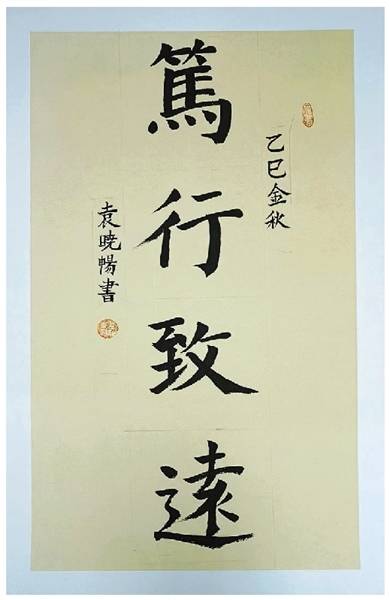 乙巳金秋
篤行致遠
袁曉暢書